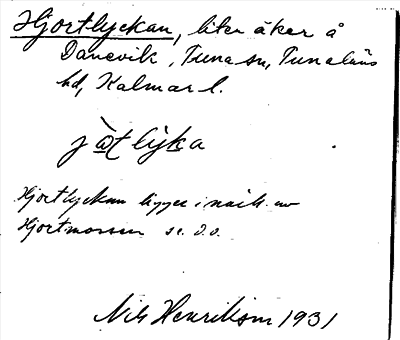 Hjortlyckan, liten åker å
Danevik, Tuna sn, Tunaläns
hd, Kalmar l.
jo̱t lỳka
Hjortlyckan ligger i närh. av
Hjortmossen se d.o.
Nils Henrikson 1931